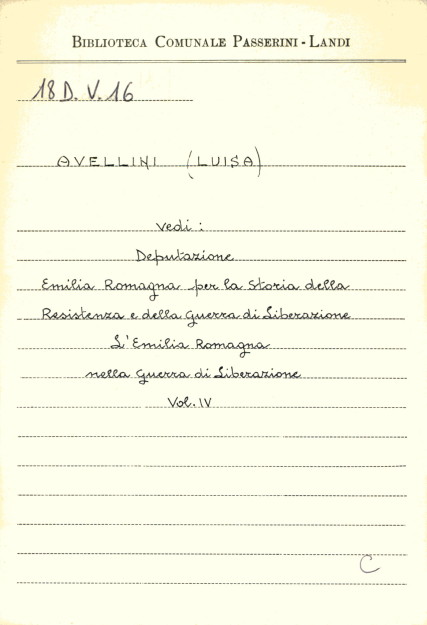 BIBLIOTECA COMUNALE PASSERINI - LANDI
18 D. V. 16
AVELLINI (LUISA)
vedi:
Deputazione
Emilia Romagna per la Storia della
Resistenza e della Guerra di Liberazione
L'Emilia Romagna
nella Guerra di Liberazione
Vol. IV
C